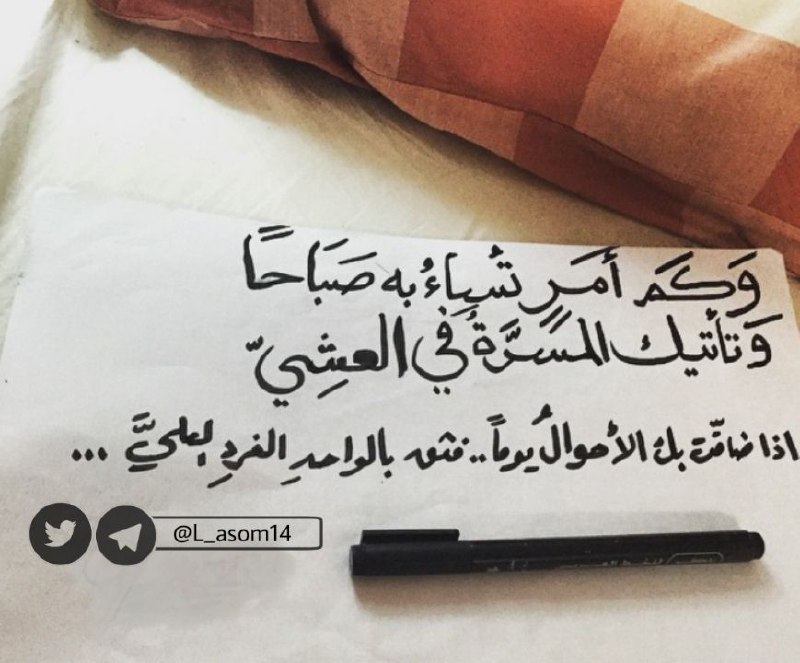 وَكَم أَمرٍ تُسِاءُ به صَبَاحًا
وَتأتيك المَسَرَّةُ في العشِيّ
اذا ضاقت بك الأحوالُ يوماً.. فثق بالواحدِ الفردِ العليَّ ...
@L_asom14